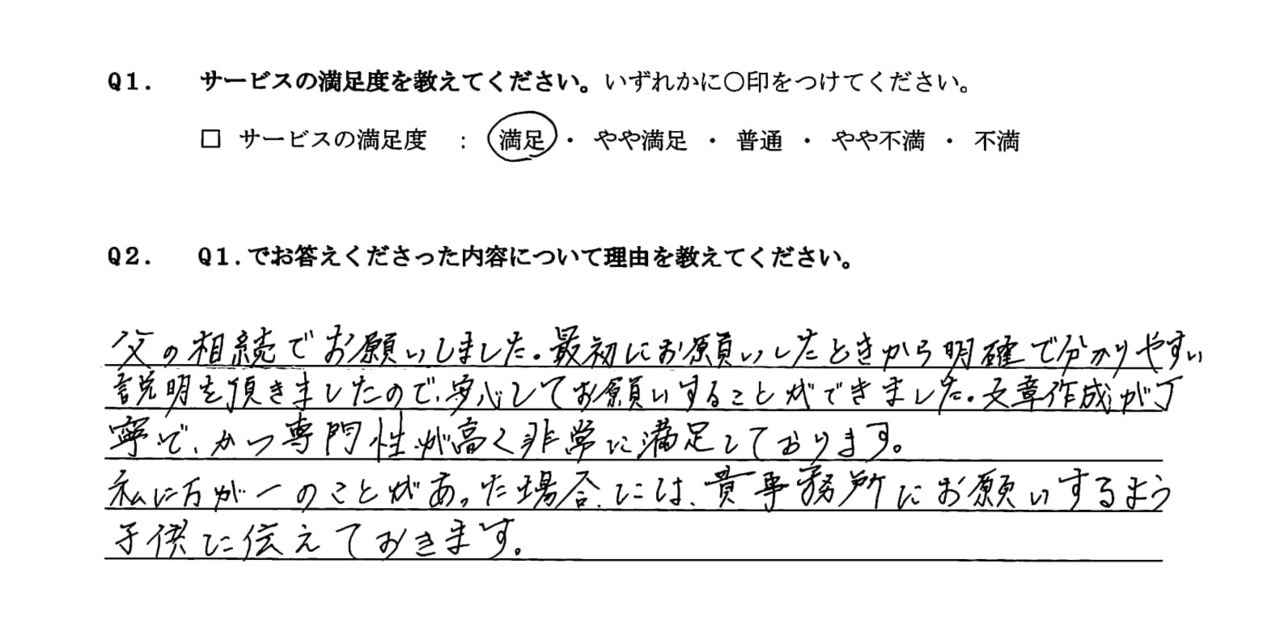 Q1. サービスの満足度を教えてください。いずれかに〇印をつけてください。
□ サービスの満足度 : 満足・ やや満足 ・ 普通 ・ やや不満 ・ 不満
Q2. Q1.でお答えくださった内容について理由を教えてください。
父の相続でお願いしました。最初にお願いしたときから明確で分かりやすい
説明を頂きましたので、安心してお願いすることができました。文章作成が丁
寧で、かつ専門性が高く非常に満足しております。
私に万が一のことがあった場合には、貴事務所にお願いするよう
子供に伝えておきます。